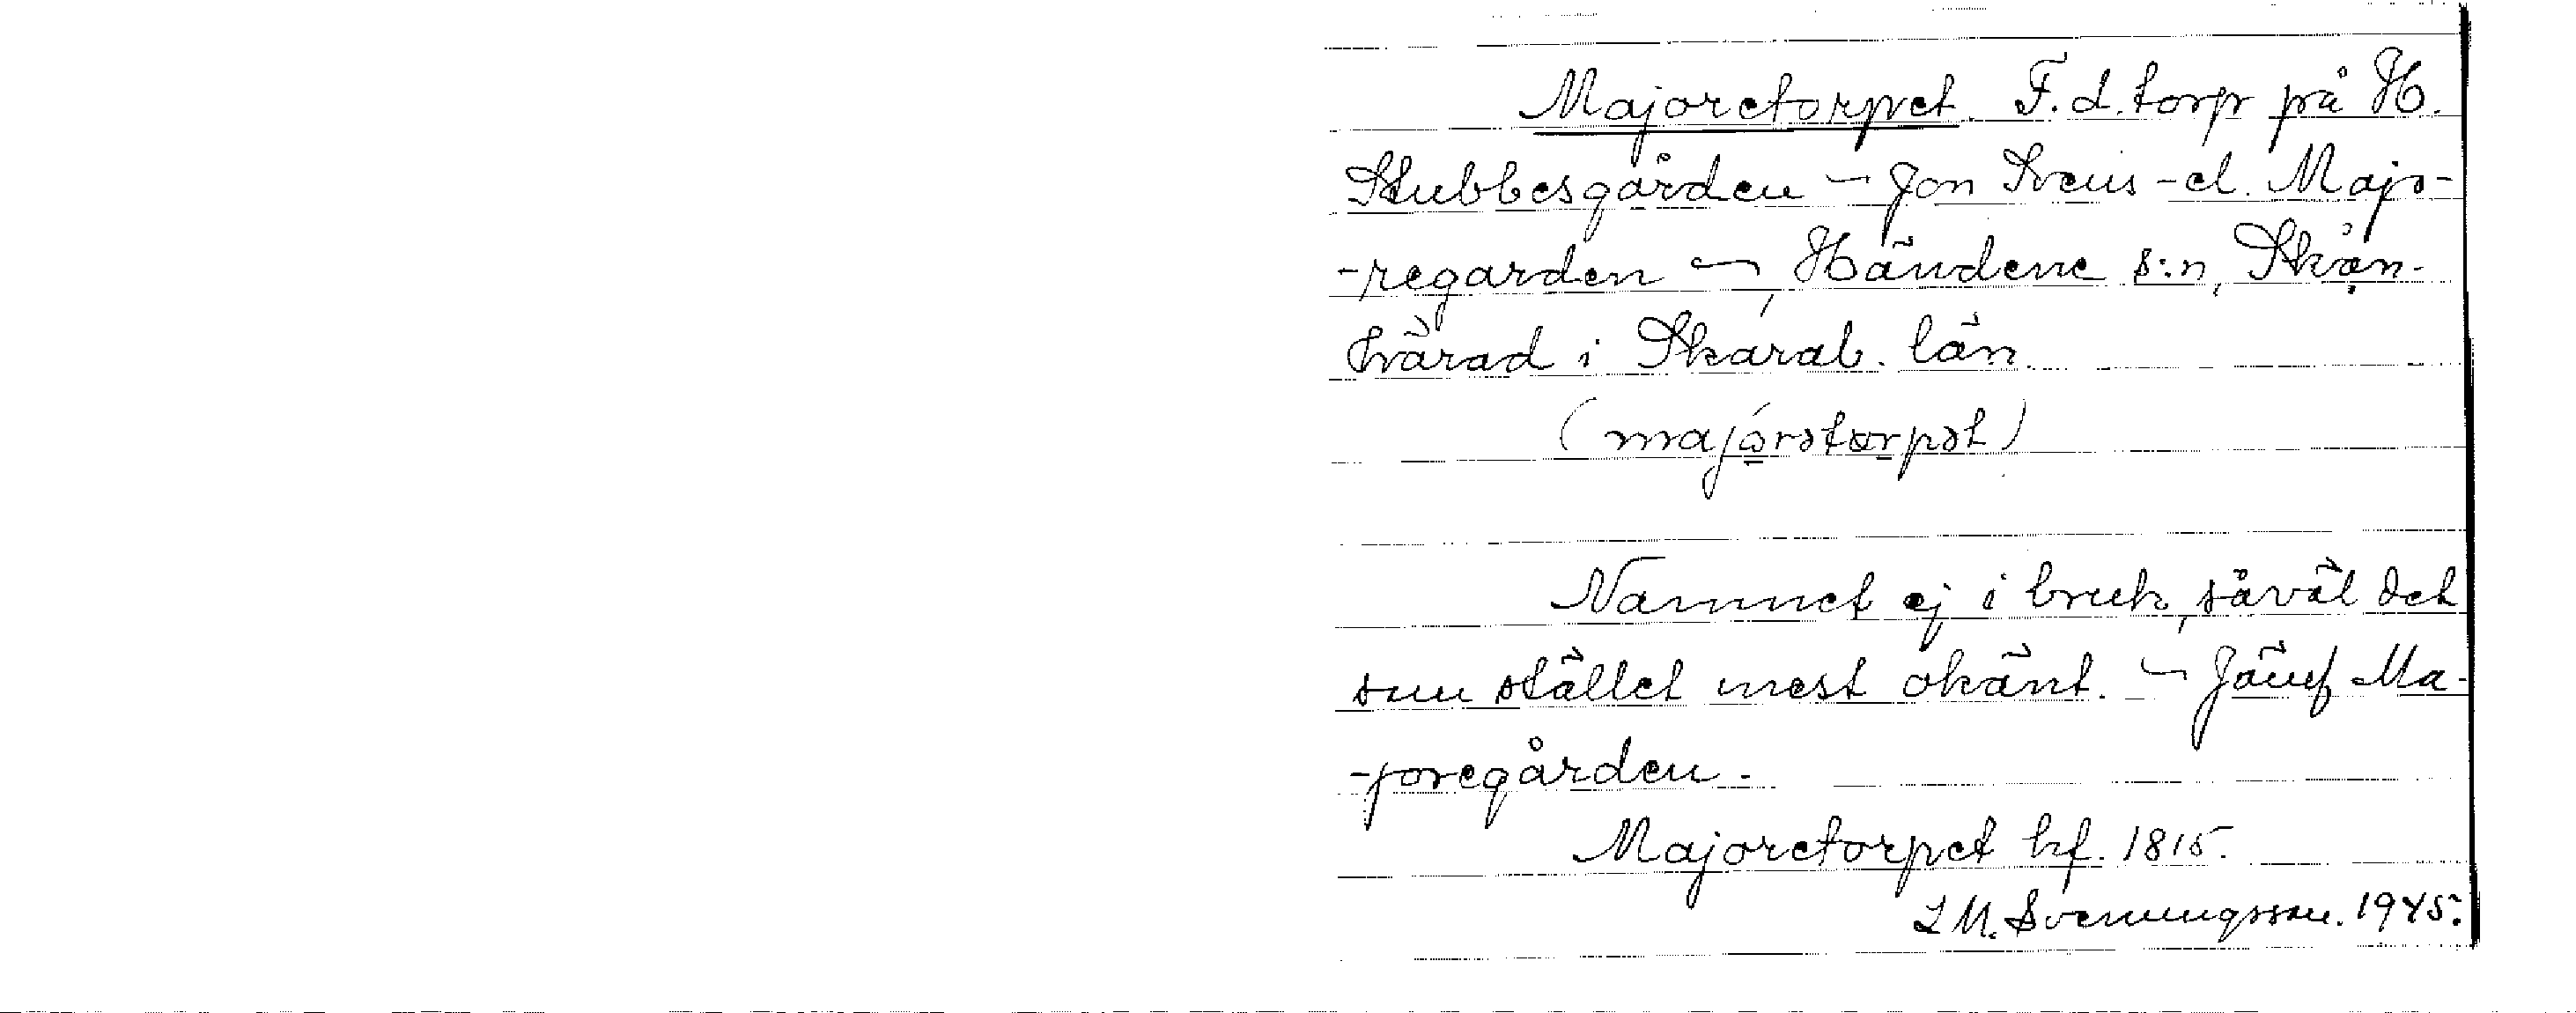 Majoretorpet. F.d. torp på H.
Stubbesgården – Jon Svens- el. Majo-
-regarden – Händene s:n, Skån-
härad i Skarab. län.
(majorətorpət)
Namnet ej i bruk, såväl det
som stället mest okänt. – Jämf Ma-
-joregården.
Majoretorpet hf. 1815.
L M. Svenungsson. 1945.